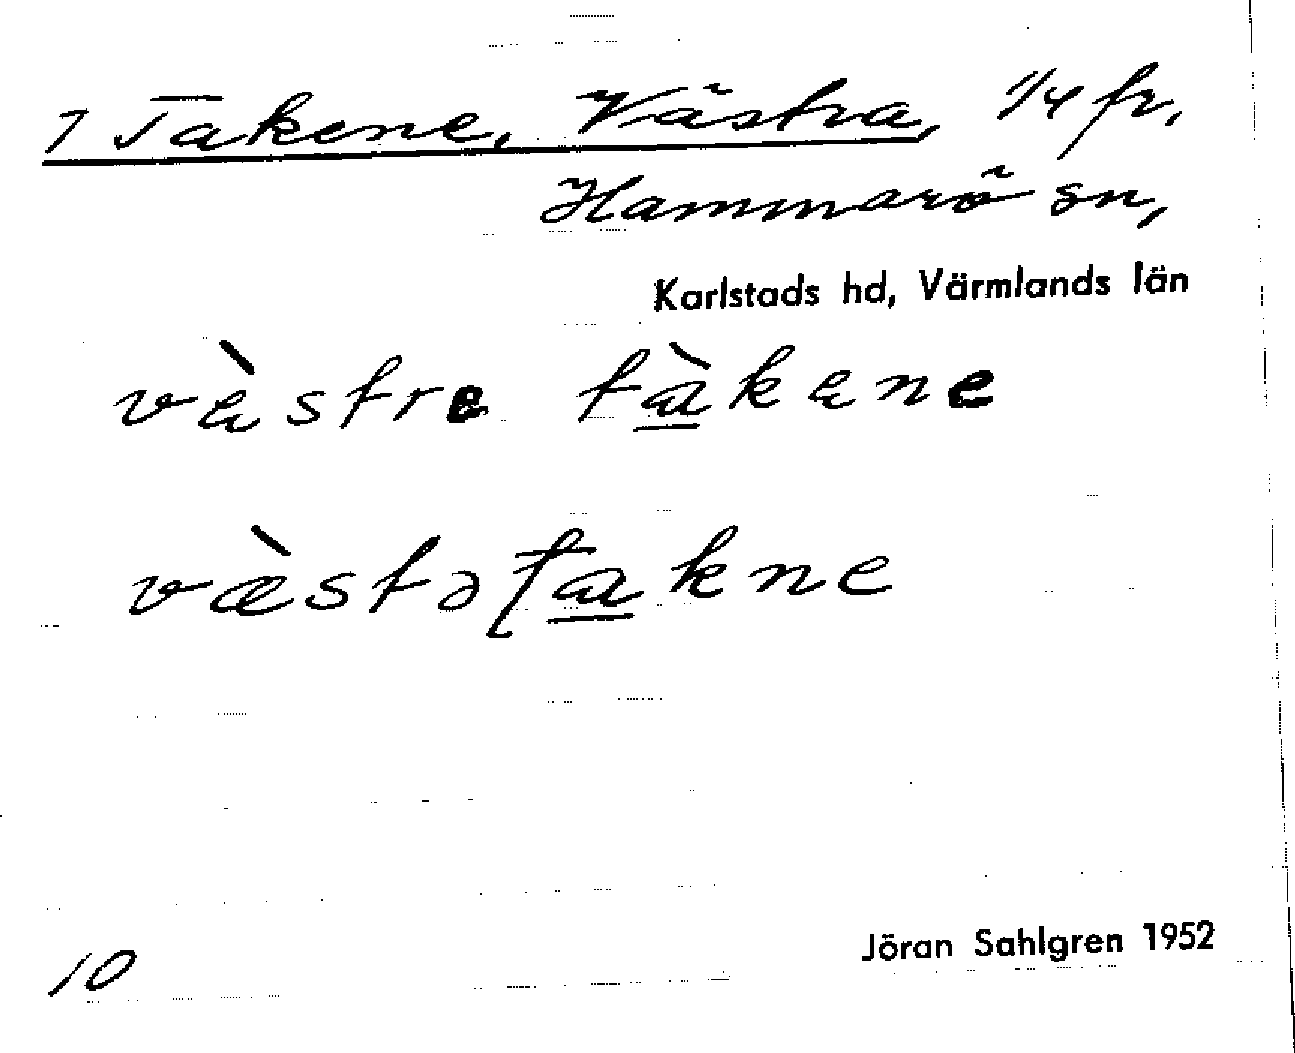 1 Takene, Västra, 1/4 fr,
Hammarö sn,
Karlstads hd, Värmlands län
vàstre tàkane
væ̀stəʈakne
Jöran Sahlgren 1952
10